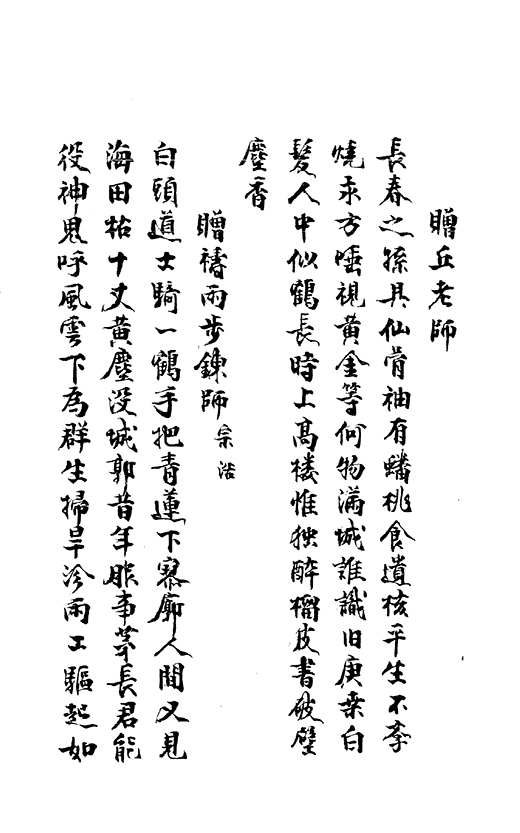 贈丘老師
長春之孫具仙骨袖有蟠桃食遺核平生不学
燒汞方唾視黄金等何物滿城誰識旧庚桑白
髮人中似鶴長時上高楼惟独醉榴皮書破壁
塵香
贈禱雨步鍊師宗浩
白頭道士騎一鶴手把青蓮下寥廓人間又見
海田枯十丈黄塵没城郭昔年服事莘長君能
役神鬼呼風雲下為群生掃旱沴雨工驅起如